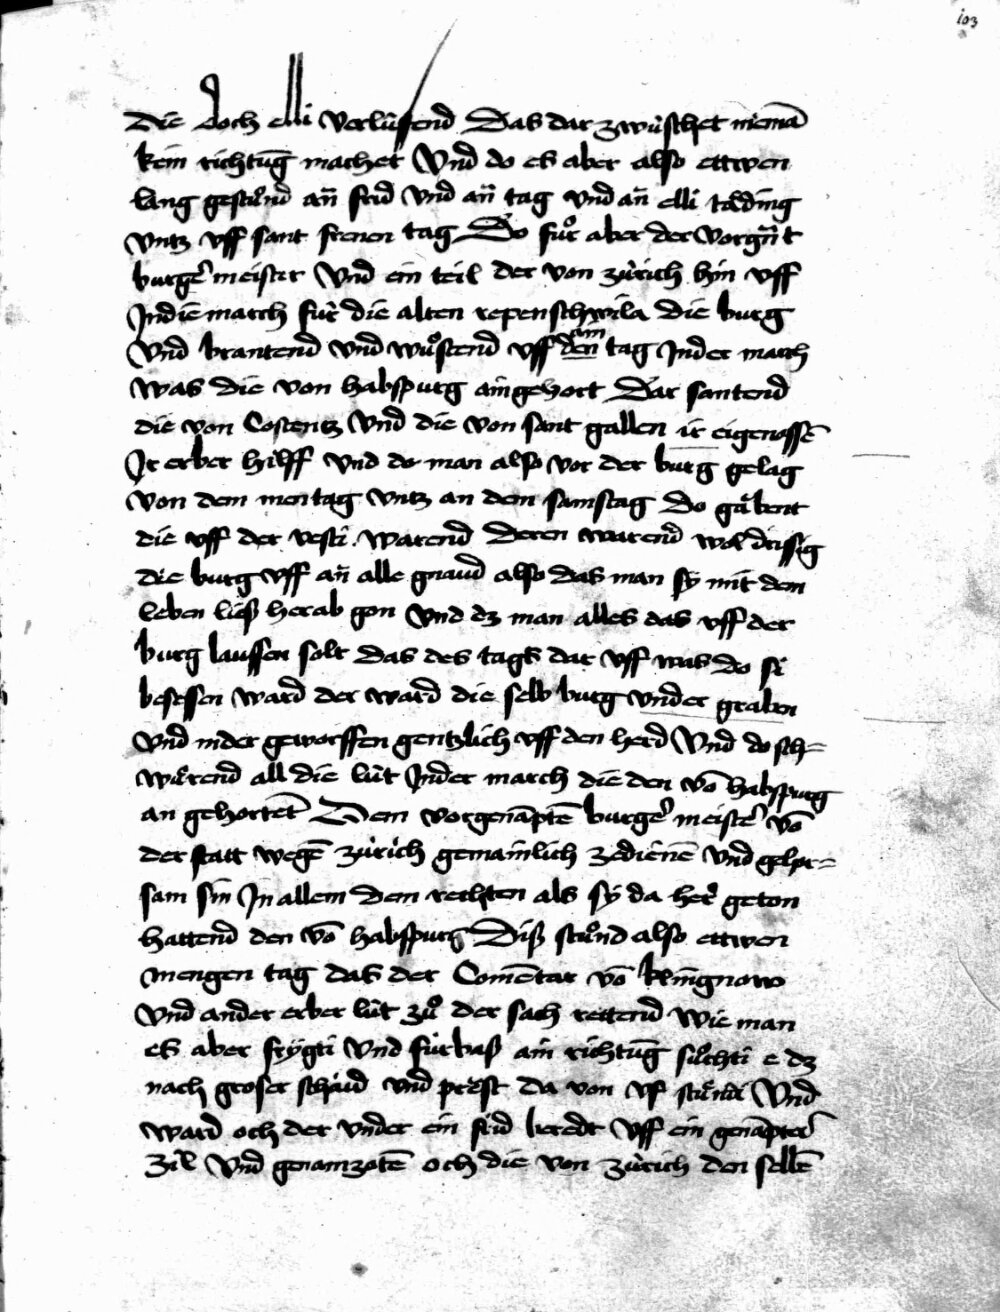 103
die doch elli verluffend Das dar zwuͤschet niemā
kein richtūg machet Vnd do es aber also ettwen
lang gestuͦnd añ frid vnd añ tag vnd añ elli taͤding
vntz vff sant frenen tag Do fuͦr aber der vorgñt
burgermeister vnd ein teil der von zuͤrich hin vff
In die march fuͤr die alten repenschwila die burg
vnd brantend vnd wuͦstend vff den ain tag In der march
was die von habspurg angehort Dar santend
die von Costentz vnd die von sant gallen ir eigenossē
Ir erber hilff vnd do man also vor der burg gelag
von dem mentag vntz an dem samstag Do gaͤbent
die vff der vesti warend Deren warend wol drissig
die burg vff añ alle gnaud also das man sy mit dem
leben ließ herab gon vnd dz man alles das vff der
burg laussen solt das des tags dar vff was do si
besessen ward der ward die selb burg vnder graben
vnd nider geworffen gentzlich vff den herd Vnd do sch=
wuͤrend all die luͤt In der march die den vō habspurg
an gehortet Dem vorgenāptē burgermeister vō
der statt wegē zuͤrich gemainlich ze dienē vnd gehor=
sam sin In allem dem rechten als sy da her geton
hattend den vō habspurg Diß stuͦnd also ettwen
mengen tag das der Comētar vō klingnow
vnd ander erber luͤt zuͦ der sach rettend wie man
es aber frygti vnd fuͤrbaß ain richtūg suͦchti e dz
nach groser schaud vnd praͤst da von vf stuͤndi Vnd
ward och der vnder ein frid beredt vff ein genāptes
zil vnd genamzotē och die von zuͤrich den selbē